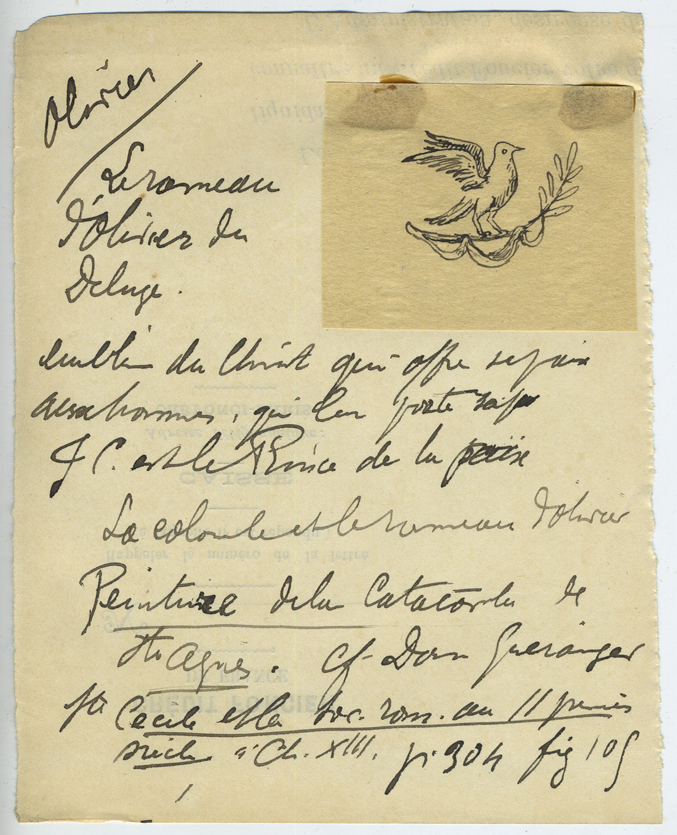 Olivier
Le rameau
d'Olivier du
Déluge.
du Christ qui offre sa paix
aux hommes, qui leur porte
J C. est le Prince de la paix
La colombe et le rameau d'olivier
Peinture de la Catacombe de
Ste Agnès. Cf. Dom Guéranger
Ste Cécile et la Soc. rom. aux II premiers
siècles Ch. XIII. p. 304 fig 105